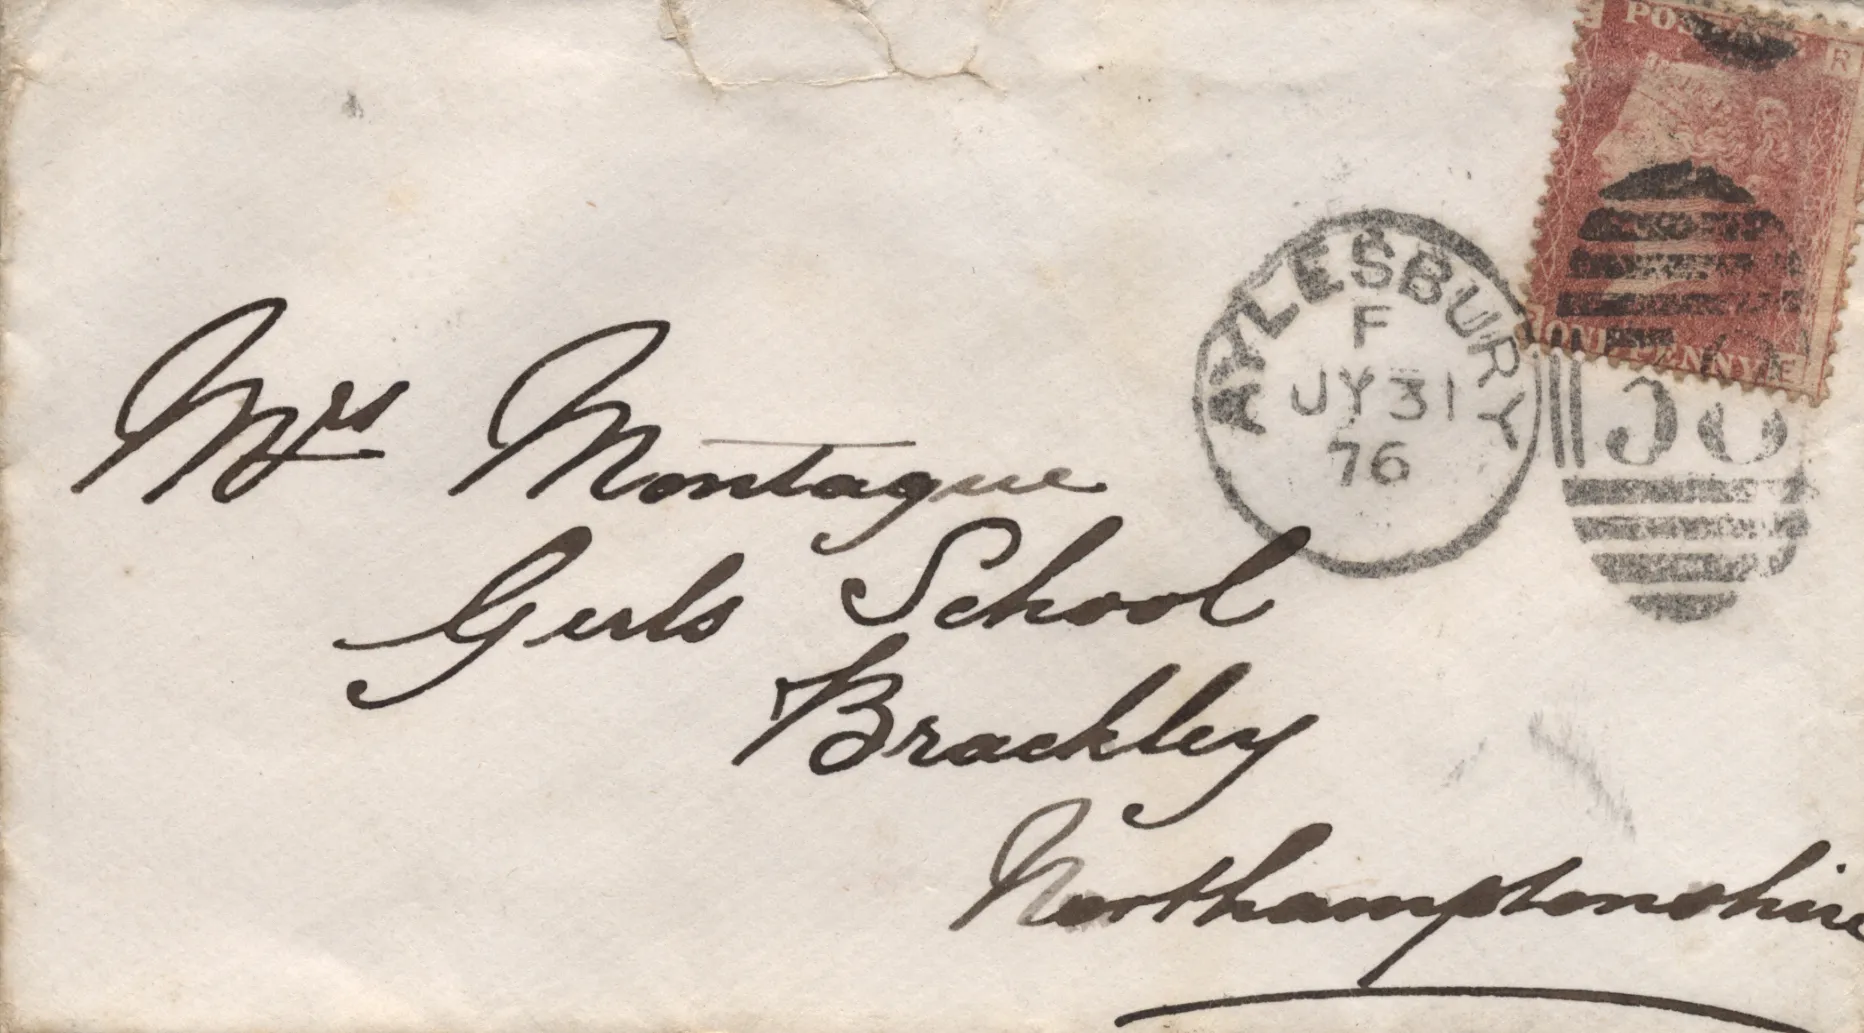 POSTAGE
R
AYLESBURY
F
JY 31
76
ONE PENNY
E
Mrs Montague
Girls School
Brackley
Northamptonshire